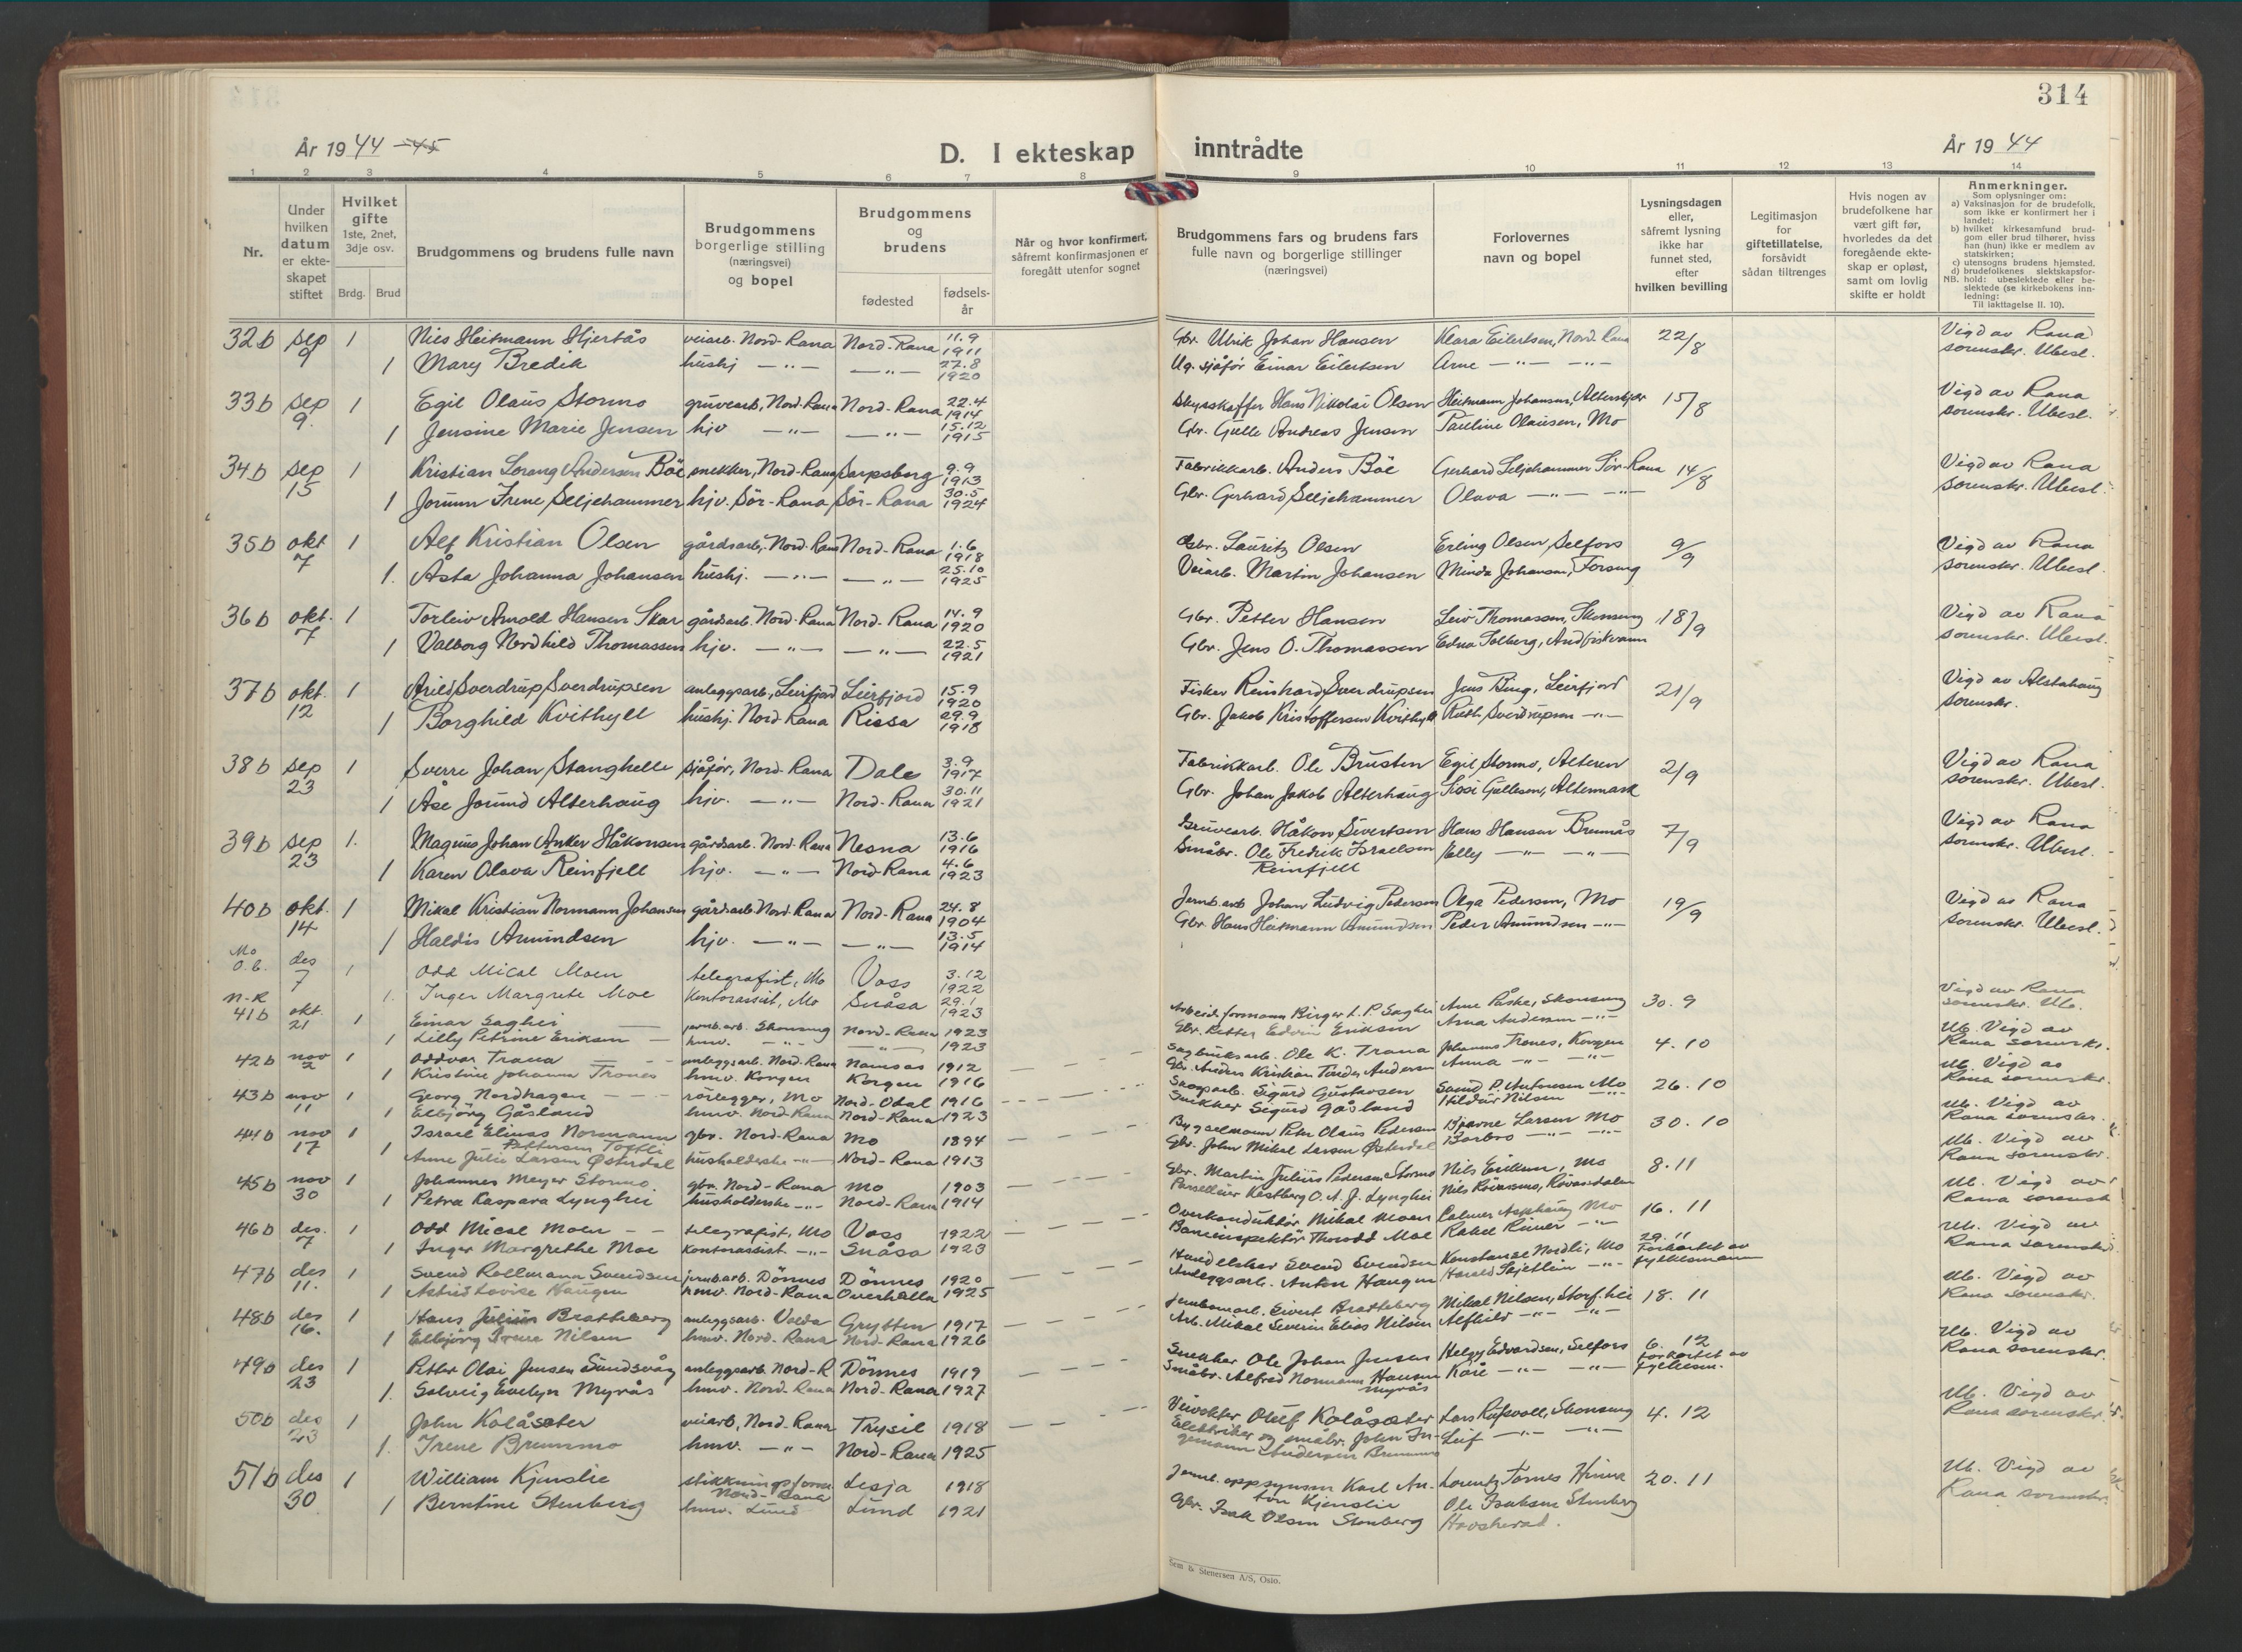 314
År 1944 -45
D. I ekteskap inntrådte
År 1944
1 2 3 4 5 6 7 8 9 10 11 12 13 14
Nr.
Under hvilken datum er ekteskapet stiftet
Hvilket gifte 1ste, 2net, 3dje osv.
Brdg. Brud
Brudgommens og brudens fulle navn
Brudgommens borgerlige stilling (næringsvei) og bopel
Brudgommens og brudens
fødested
fødsels-år
Når og hvor konfirmert, såfremt konfirmasjonen er foregått utenfor sognet
Brudgommens fars og brudens fars fulle navn og borgerlige stillinger (næringsvei)
Forlovernes navn og bopel
Lysningsdagen eller, såfremt lysning ikke har funnet sted, efter hvilken bevilling
Legitimasjon for giftetillatelse, forsåvidt sådan tiltrenges
Hvis nogen av brudefolkene har vært gift før, hvorledes da det foregående ekteskap er opløst, samt om lovlig skifte er holdt
Anmerkninger.
Som oplysninger om:
a) Vaksinasjon for de brudefolk, som ikke er konfirmert her i landet;
b) hvilket kirkesamfund brudgom eller brud tilhører, hviss han (hun) ikke er medlem av statskirken;
c) utensogns brudens hjemsted.
d) brudefolkenes slektskapsforhold: ubeslektede eller beslektede (se kirkebokens innledning:
NB. Til iakttagelse II. 10).
32b sep 9 1 Nils Heitmann Hjertås veiarb. Nord-Rana Nord-Rana 11.9 1911 Gbr. Ulrik Johan Hansen Klara Eilertsen, Nord-Rana 22/8 Vigd av Rana
1 Mary Bredik hushj —"— —"— 27.8 1920 Ug. sjåfør Einar Eilertsen Arne —"— —"— sorenskr. Ubesl.
33b sep 9. 1 Egil Olaus Stormo gruvearb, Nord-Rana Nord-Rana 22.4 1914 Skysskaffer Hans Nikolai Olsen Heitmann Johansen, 15/8 Vigd av Rana
1 Jensine Marie Jensen hjv —"— —"— 15.12 1915 Gbr. Gulle Andreas Jensen Pauline Olausen, Mo sorenskr. Ubesl.
34b sep 15 1 Kristian Lorang Andersen Böe snekker, Nord-Rana Sarpsborg 9.9 1913 Fabrikkarb. Anders Böe Gerhard Seljehammer Sør-Rana 14/8 Vigd av Rana
1 Jorunn Irene Seljehammer hjv. Sör-Rana Sör-Rana 30.5 1924 Gbr. Gerhard Seljehammer Olava —"— —"— sorenskr. Ubesl.
35b okt 7 1 Alf Kristian Olsen gårdsarb, Nord-Rana Nord-Rana 1.6 1918 Gbr. Lauritz Olsen Erling Olsen, Selfors 9/9 Vigd av Rana
1. Åsta Johanna Johansen hushj. —"— —"— 25.10 1925 Veiarb. Martin Johansen Minda Johansen, Forsmg sorenskr. Ubesl.
36b okt. 7 1 Torleiv Arnold Hansen Skar gårdsarb. Nord-Rana Nord-Rana 14.9 1920 Gbr. Petter Hansen Leiv Thomassen, Skonseng 18/9 Vigd av Rana
1 Valborg Nordhild Thomassen hjv. —"— —"— 22.5 1921 Gbr. Jens O. Thomassen Edna Solberg, Andfiskvann sorenskr. Ubesl.
37b okt. 12 1 Arild Sverdrup Sverdrupsen anleggsarb, Leirfjord Leirfjord 15.9 1920 Fisker Reinhard Sverdrupsen Jens Bing, Leirfjord 21/9 Vigd av Alstahaug
1 Borghild Kvithyll hushj. Nord-Rana Rissa 29.9 1918 Gbr. Jakob Kristoffersen Kvithyll Ruth Sverdrupsen —"— sorenskr.
38b sep 23 1 Sverre Johan Stanghelle sjåför, Nord-Rana Dale 3.9 1917 Fabrikkarb. Ole Brusten Egil Stormo, Alteren 2/9 Vigd av Rana
1 Åse Jorund Alterhaug hjv. —"— Nord-Rana 30.11 1921 Gbr. Johan Jakob Alterhaug Sissi Gullesen, Altermark sorenskr. Ubesl.
39b sep 23 1. Magnus Johan Anker Håkonsen gårdsarb. Nord-Rana Nesna 13.6 1916 Gruvearb. Håkon Sivertsen Hans Hansen Brennås 7/9 Vigd av Rana
1 Karen Olava Reinfjell hjv. —"— Nord-Rana 4.6 1923 Småbr. Ole Fredrik Israelsen Reinfjell Nelly —"— —"— sorenskr. Ubesl.
40b okt. 14 1 Mikal Kristian Normann Johansen gårdsarb Nord-Rana Nord-Rana 24.8 1904 Jernb.arb Johan Ludvig Pedersen Olga Pedersen, Mo 19/9 Vigd av Rana
1 Haldis Amundsen hjv. —"— —"— 13.5 1914 Gbr. Hans Heitmann Amundsen Peder Amundsen —"— sorenskr. Ubesl.
Mo O.b. des 7 1 Odd Mical Moen telegrafist, Mo Voss 3.12 1922
1. Inger Margrete Moe Kontorassist, Mo Snåsa 29.1 1923
N-R 41b okt. 21 1 Einar Saghei jernb.arb. Skonseng Nord-Rana 1923 Arbeidsformann Birger L. P. Saghei Arne Påske, Skonseng 30.9 Vigd av Rana sorenskr. Ub.
1 Lilly Petrine Eriksen hmv. —"— —"— 1923 Gbr. Petter Edvin Eriksen Anna Andersen —"—
42b nov 2 1 Oddvar Trana anleggsarb. Nord-Rana Namsos 1912 Sagbruksarb. Ole K. Trana Johannes Trones, Korgen 4.10 Ub. Vigd av Rana sorenskr.
1 Kristine Johanna Trones hmv. Korgen Korgen 1916 Gbr. Anders Kristian Tinder Andersen Anna —"— —"—
43b nov 11 1 Georg Nordhagen rörlegger, Mo Nord-Odal 1916 Skogsarb. Sigurd Gustavsen Svend P. Antonsen Mo 26.10 Ub. Vigd av Rana sorenskr.
1 Elbjörg Gåsland hmv. Nord-Rana Nord-Rana 1923 Snekker Sigurd Gåsland Hildur Nilsen —"—
44b nov 17 1 Israel Elinas Normann Pettersen Toftli gbr. Nord-Rana Mo 1894 Bygselmann Peter Olaus Pedersen Bjarne Larsen Mo 30.10 Ub. Vigd av Rana sorenskr.
1 Anne Julie Larsen Østerdal husholderske —"— Nord-Rana 1913 Gbr. John Mikal Larsen Østerdal Barbro —"— —"—
45b nov 30 1 Johannes Meyer Stormo gbr. Nord-Rana Mo 1903 Gbr. Martin Julius Pedersen Stormo Nils Eriksen, Mo 8.11 Ub. Vigd av Rana sorenskr.
1 Petra Kaspara Lynghei husholderske —"— Nord-Rana 1914 Parselleier Kastberg O. A. J. Lynghei Nils
46b des. 7 1 Odd Mical Moen telegrafist, Mo Voss 1922 Overkonduktör Mikal Moen Calmer Asphaug Mo 16.11 Ub. Vigd av Rana sorenskr.
1 Inger Margrethe Moe kontorassist. —"— Snåsa 1923 Baneinspektör Thorodd Moe Rakel Rimer —"—
47b des 11. 1 Svend Rollmann Svendsen jernb.arb. Dönnes Dönnes 1920 Handelsber Svend Svendsen Konstanse Nordli, Mo 29.11 Forkortet av fylkesmann Ub. Vigd av Rana sorenskr.
1 Astrid Lovise Haugen hmv. Nord-Rana Overhalla 1925 Anleggsarb. Anton Haugen Harald Skjetlein —"—
48b des 16. 1 Hans Julius Bratteberg anleggsarb. Volda Grytten 1917 Jernbanearb. Sivert Bratteberg Mikal Nilsen, Storf.hei 18.11 Ub. Vigd av Rana sorenskr.
1 Elbjörg Irene Nilsen hmv. Nord-Rana Nord-Rana 1926 Arb. Mikal Severin Elias Nilsen Alfhild —"— —"—
49b des 23 1 Petter Olai Jensen Sundsvåg anleggsarb. Nord-R Dönnes 1919 Snekker Ole Johan Jensen Helgy Edvardsen, Selfors 6.12 forkortet av fylkesm. Ub. Vigd av Rana sorenskr.
1. Solveig Evelyn Myrås hmv. Nord-Rana Nord-Rana 1927 Småbr. Alfred Normann Hansen Myrås Kåre —"— —"—
50b des 23 1 John Kolåsæter veiarb, Nord-Rana Trysil 1918 Veivokter Oluf Kolåsæter Lars Røssvoll, Skonseng 4.12 Ub. Vigd av Rana sorenskr.
1. Irene Brennmo hmv. —"— Nord-Rana 1925 Elektriker og småbr. John Ingemann Andersen Brennmo Leif —"— —"—
51b des 30 1 William Kjenslie stikningsform Nord-Rana Lesja 1918 Jernb. oppsynsm Karl Anton Kjenslie Lorentz Tornes Hemnes 20.11 Ub. Vigd av Rana sorenskr.
1 Berntine Stenberg hmv. Lund Lund 1921 Gbr. Isak Olsen Stenberg Ole Isaksen Stenberg Hovsherad.
Sem & Stenersen A/S, Oslo.